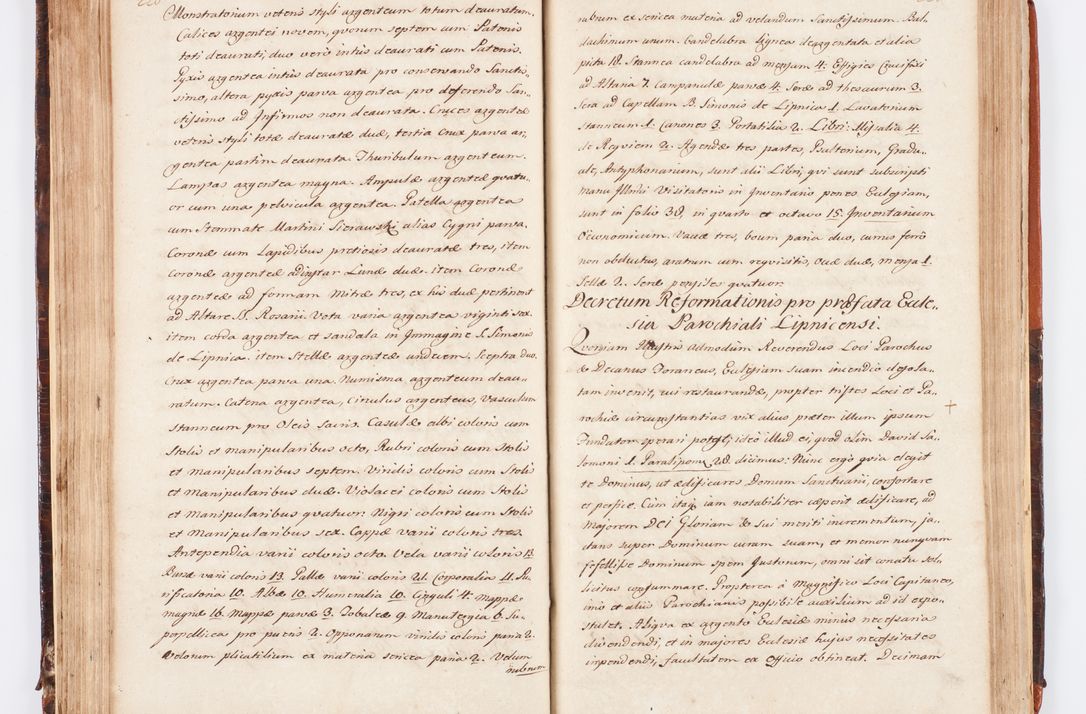 Monstratorium veteris styli argenteum totum deauratum.
Calices argentei novem, quorum septem cum Patenis
toti deaurati, duo vero intus deaurati cum Patenis.
Pyxis argentea intus deaurata pro conservando Sanctis-
simo, altera pyxis parva argentea pro deferendo San-
ctissimo ad Infirmos non deaurata. Cruces argenteæ
veteris styli totæ deauratæ duæ, tertia Crux parva ar-
gentea partim deaurata. Thuribulum argenteum.
Lampas argentea magna. Ampulæ argenteæ quatu-
or cum una pelvicula argentea. Patella argentea
cum Stemmate Martini Sierawski alias Cygni parva.
Coronæ cum Lapidibus pretiosis deauratæ tres, item
Coronæ argenteæ ad instar Lunæ duæ. item Coronæ
argenteæ ad formam Mitræ tres, ex his duæ pertinent
ad Altare SS. Rosarii. Vota varia argentea viginti sex.
item corda argentea et sandala in Immagine S. Simonis
de Lipnica. item Stellæ argenteæ undecim. Sceptra duo.
Crux argentea parva una. Numisma argenteum deau-
ratum. Catena argentea, circulus argenteus, Vasculum
Stanneum pro Oleis Sacris. Casulæ albi coloris cum
Stolis et manipularibus octo, Rubri coloris cum Stolis
et manipularibus septem. Viridis coloris cum Stolis
et Manipularibus duæ. Violacei coloris cum Stolis
et Manipularibus quatuor. Nigri coloris cum Stolis
et Manipularibus sex. Cappæ varii coloris tres.
Antependia varii coloris octo. Vela varii coloris 13.
Bursæ varii coloris 13. Pallæ varii coloris 21. Corporalia 11. Pu-
rificatoria 10. Albæ 10. Humeralia 10. Cinguli 4. Mappæ
magnæ 16. Mappæ parvæ 3. Tobaleæ 9. Manutergia 6. Su-
perpellicea pro pueris 2. Opponarum viridis coloris paria 2.
Velorum plicatilium ex materia sericea paria 2. Velum
rubrum
rubrum ex sericea materia ad velandum Sanctissimum. Bal-
dachinum unum. Candelabra lignea deargentata et alia
picta 18. Stannea candelabra ad mensam 4. Effigies Crucifixi
ad Altaria 7. Campanulæ parvæ 4. Seræ ad thesaurum 3.
Sera ad Capellam B. Simonis de Lipnica 1. Lavatorium
Stanneum 1. Canones 3. Portatilia 2. Libri: Missalia 4.
de Requiem 2. Agendæ tres partes, Psalterium, Gradu-
ale, Antyphonarium, sunt alii Libri, qui sunt subscripti
manu Illmi Visitatoris in Inventario penes Ecclesiam,
sunt in folio 38, in quarto et octavo 15. Inventarium
Oeconomicum. Vaccæ tres, boum paria duo, currus ferro
non obductus, aratum cum requisitis, Ocæ duæ, mensa 1.
Sellæ 2. Seræ pensiles quatuor.
Decretum Reformationis pro præfata Eccle-
sia Parochiali Lipnicensi.
Quoniam Illustris Admodum Reverendus Loci Parochus
& Decanus Foraneus, Ecclesiam suam incendio desola-
tam invenit, cui restaurandæ, propter tristes Loci et Pa-
rochiæ circumstantias vix alius præter illum ipsum
Fundator sperari potest, ideo illud ei, quod olim David Sa-
lomoni 1. Paralipom: 28 dicimus: Nunc ergo quia elegit
te Dominus, ut ædificares Domum Sanctuarii, confortare
et perfice. Cum itaq iam notabiliter cæperit ædificare, ad
Majorem DEI Gloriam & sui meriti incrementum, ja-
ctans super Dominum curam suam, et memor nunquam
fefellisse Dominum spem Justorum, omni sit conatu sol-
licitus consummare. Propterea a Magnifico Loci Capitaneo,
imo et aliis Parochianis possibile auxilium ad id expo-
stulet. Aliqva ex argento Ecclesiæ minus necessaria
divendendi, et in majores Ecclesiæ hujus necessitates
impendendi, facultatem ex Officio obtineat. Decimam